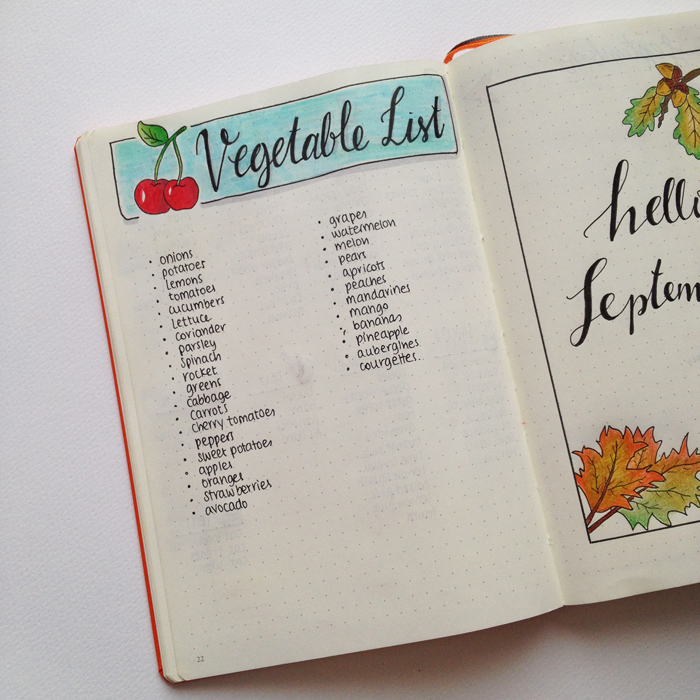 Vegetable List
• onions
• potatoes
• Lemons
• tomatoes
• cucumbers
• Lettuce
• coriander
• parsley
• spinach
• rocket
• greens
• cabbage
• carrots
• cherry tomatoes
• peppers
• sweet potatoes
• apples
• oranges
• strawberries
• avocado
• grapes
• watermelon
• melon
• pears
• apricots
• peaches
• mandarines
• mango
• bananas
• pineapple
• aubergines
• courgettes..
22
hello
Septem